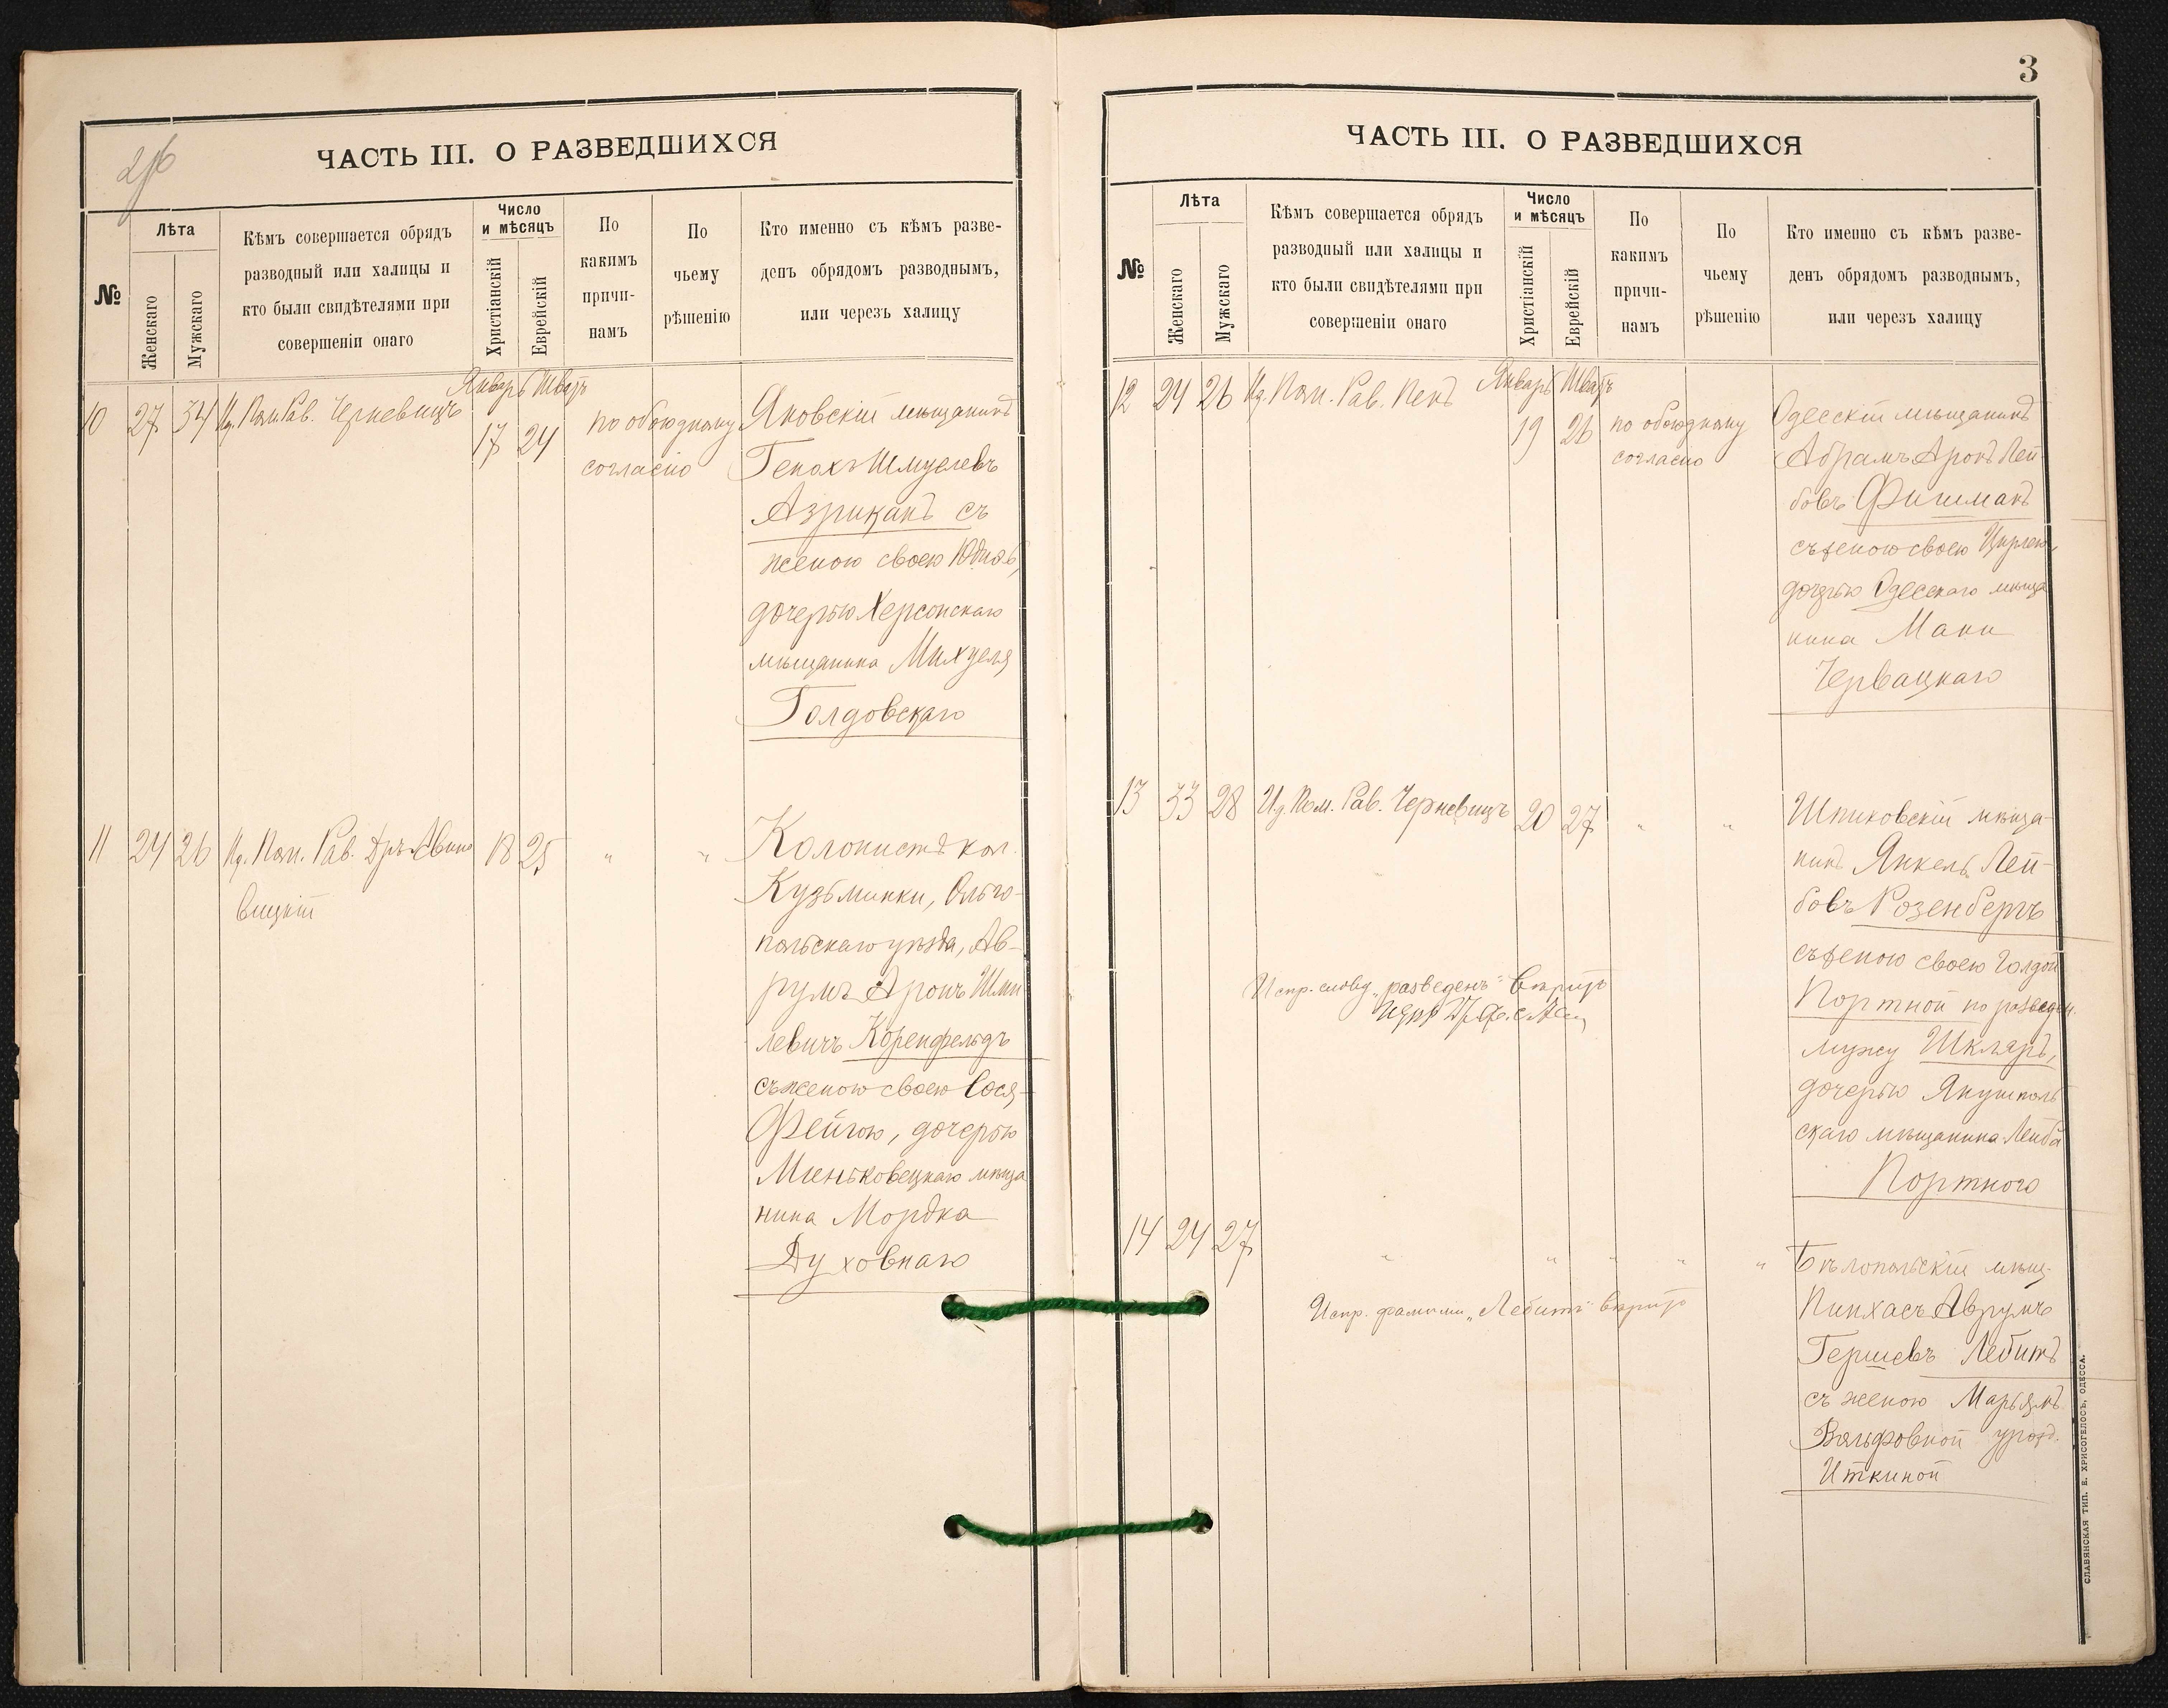 3
ЧАСТЬ III. О РАЗВЕДШИХСЯ
№
Лѣта
Женскаго
Мужскаго
Кѣмъ совершается обрядъ
разводный или халицы и
кто были свидѣтелями при
совершеніи онаго
Число
и мѣсяцъ
Христіанскій
Еврейскій
По
какимъ
причи-
намъ
По
чьему
рѣшенію
Кто именно съ кѣмъ разве-
денъ обрядомъ разводнымъ,
или черезъ халицу
Январь Шватъ
10 27 34 Из. Пом. Рав. Черневицъ 17 24
по обоюдному
согласію
Яновскій мѣщанинъ
Генохъ Шмулевъ
Азриканъ съ
женою своею
дочерью Херсонскаго
мѣщанина Михуеля
Голдовскаго
11 24 26 Из. Пом. Рав. Дръ Авино
вицкій
18 25 " "
Колонистъ кол.
Кузьминки, Ольго-
польскаго уѣзда, Ав-
румъ Аронъ Шми
левичъ Коренфельдъ
съ женою своею Сося-
Фейгою, дочерью
Миньковецкаго мѣща
нина Мордка
Духовнаго
ЧАСТЬ III. О РАЗВЕДШИХСЯ
№
Лѣта
Женскаго
Мужскаго
Кѣмъ совершается обрядъ
разводный или халицы и
кто были свидѣтелями при
совершеніи онаго
Число
и мѣсяцъ
Христіанскій
Еврейскій
По
какимъ
причи-
намъ
По
чьему
рѣшенію
Кто именно съ кѣмъ разве-
денъ обрядомъ разводнымъ,
или черезъ халицу
Январь Шватъ
12 24 26 Из. Пом. Рав. Пенъ 19 26
по обоюдному
согласію
Одесскій мѣщанинъ
Абрамъ Аронъ Лей
бовъ Фишманъ
съ женою своею Цирлею,
дочерью Одесскаго мѣща
нина Мани
Червацкаго
13 33 28 Из. Пом. Рав. Черневицъ 20 27 " "
Шпиковскій мѣща-
нинъ Янкель Лей-
бовъ Розенбергъ
съ женою своею Голдой
Портной по разведен.
мужу Шкляръ,
дочерью Янушполь
скаго мѣщанина Лейба
Портного
Испр. слову „разведенъ" вѣрить
14 24 27 " " " " "
Бѣлопольскій мѣщ.
Пинхасъ Аврумъ
Гершевъ Лебитъ
съ женою Марьямъ
Вольфовной урожд.
Иткиной
Испр. фамиліи „Лебитъ" вѣрить
СЛАВЯНСКАЯ ТИП. Е. ХРИСОГЕЛОСЪ, ОДЕССА.